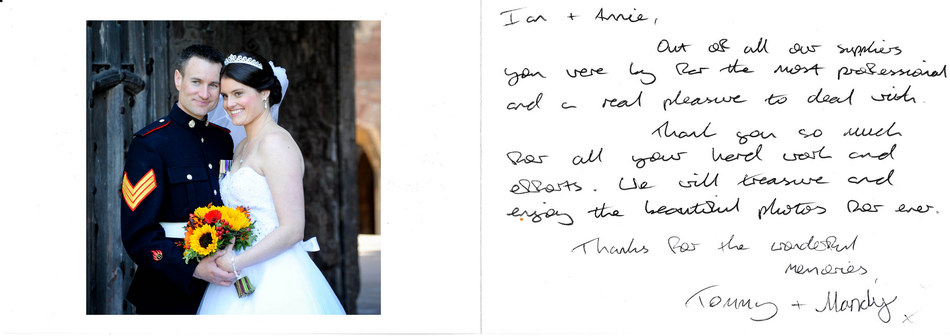 Ian + Annie,
Out of all our suppliers
you were by far the most professional
and a real pleasure to deal with.
Thank you so much
for all your hard work and
efforts. We will treasure and
enjoy the beautiful photos for ever.
Thanks for the wonderful
memories,
Tommy + Mandy
x